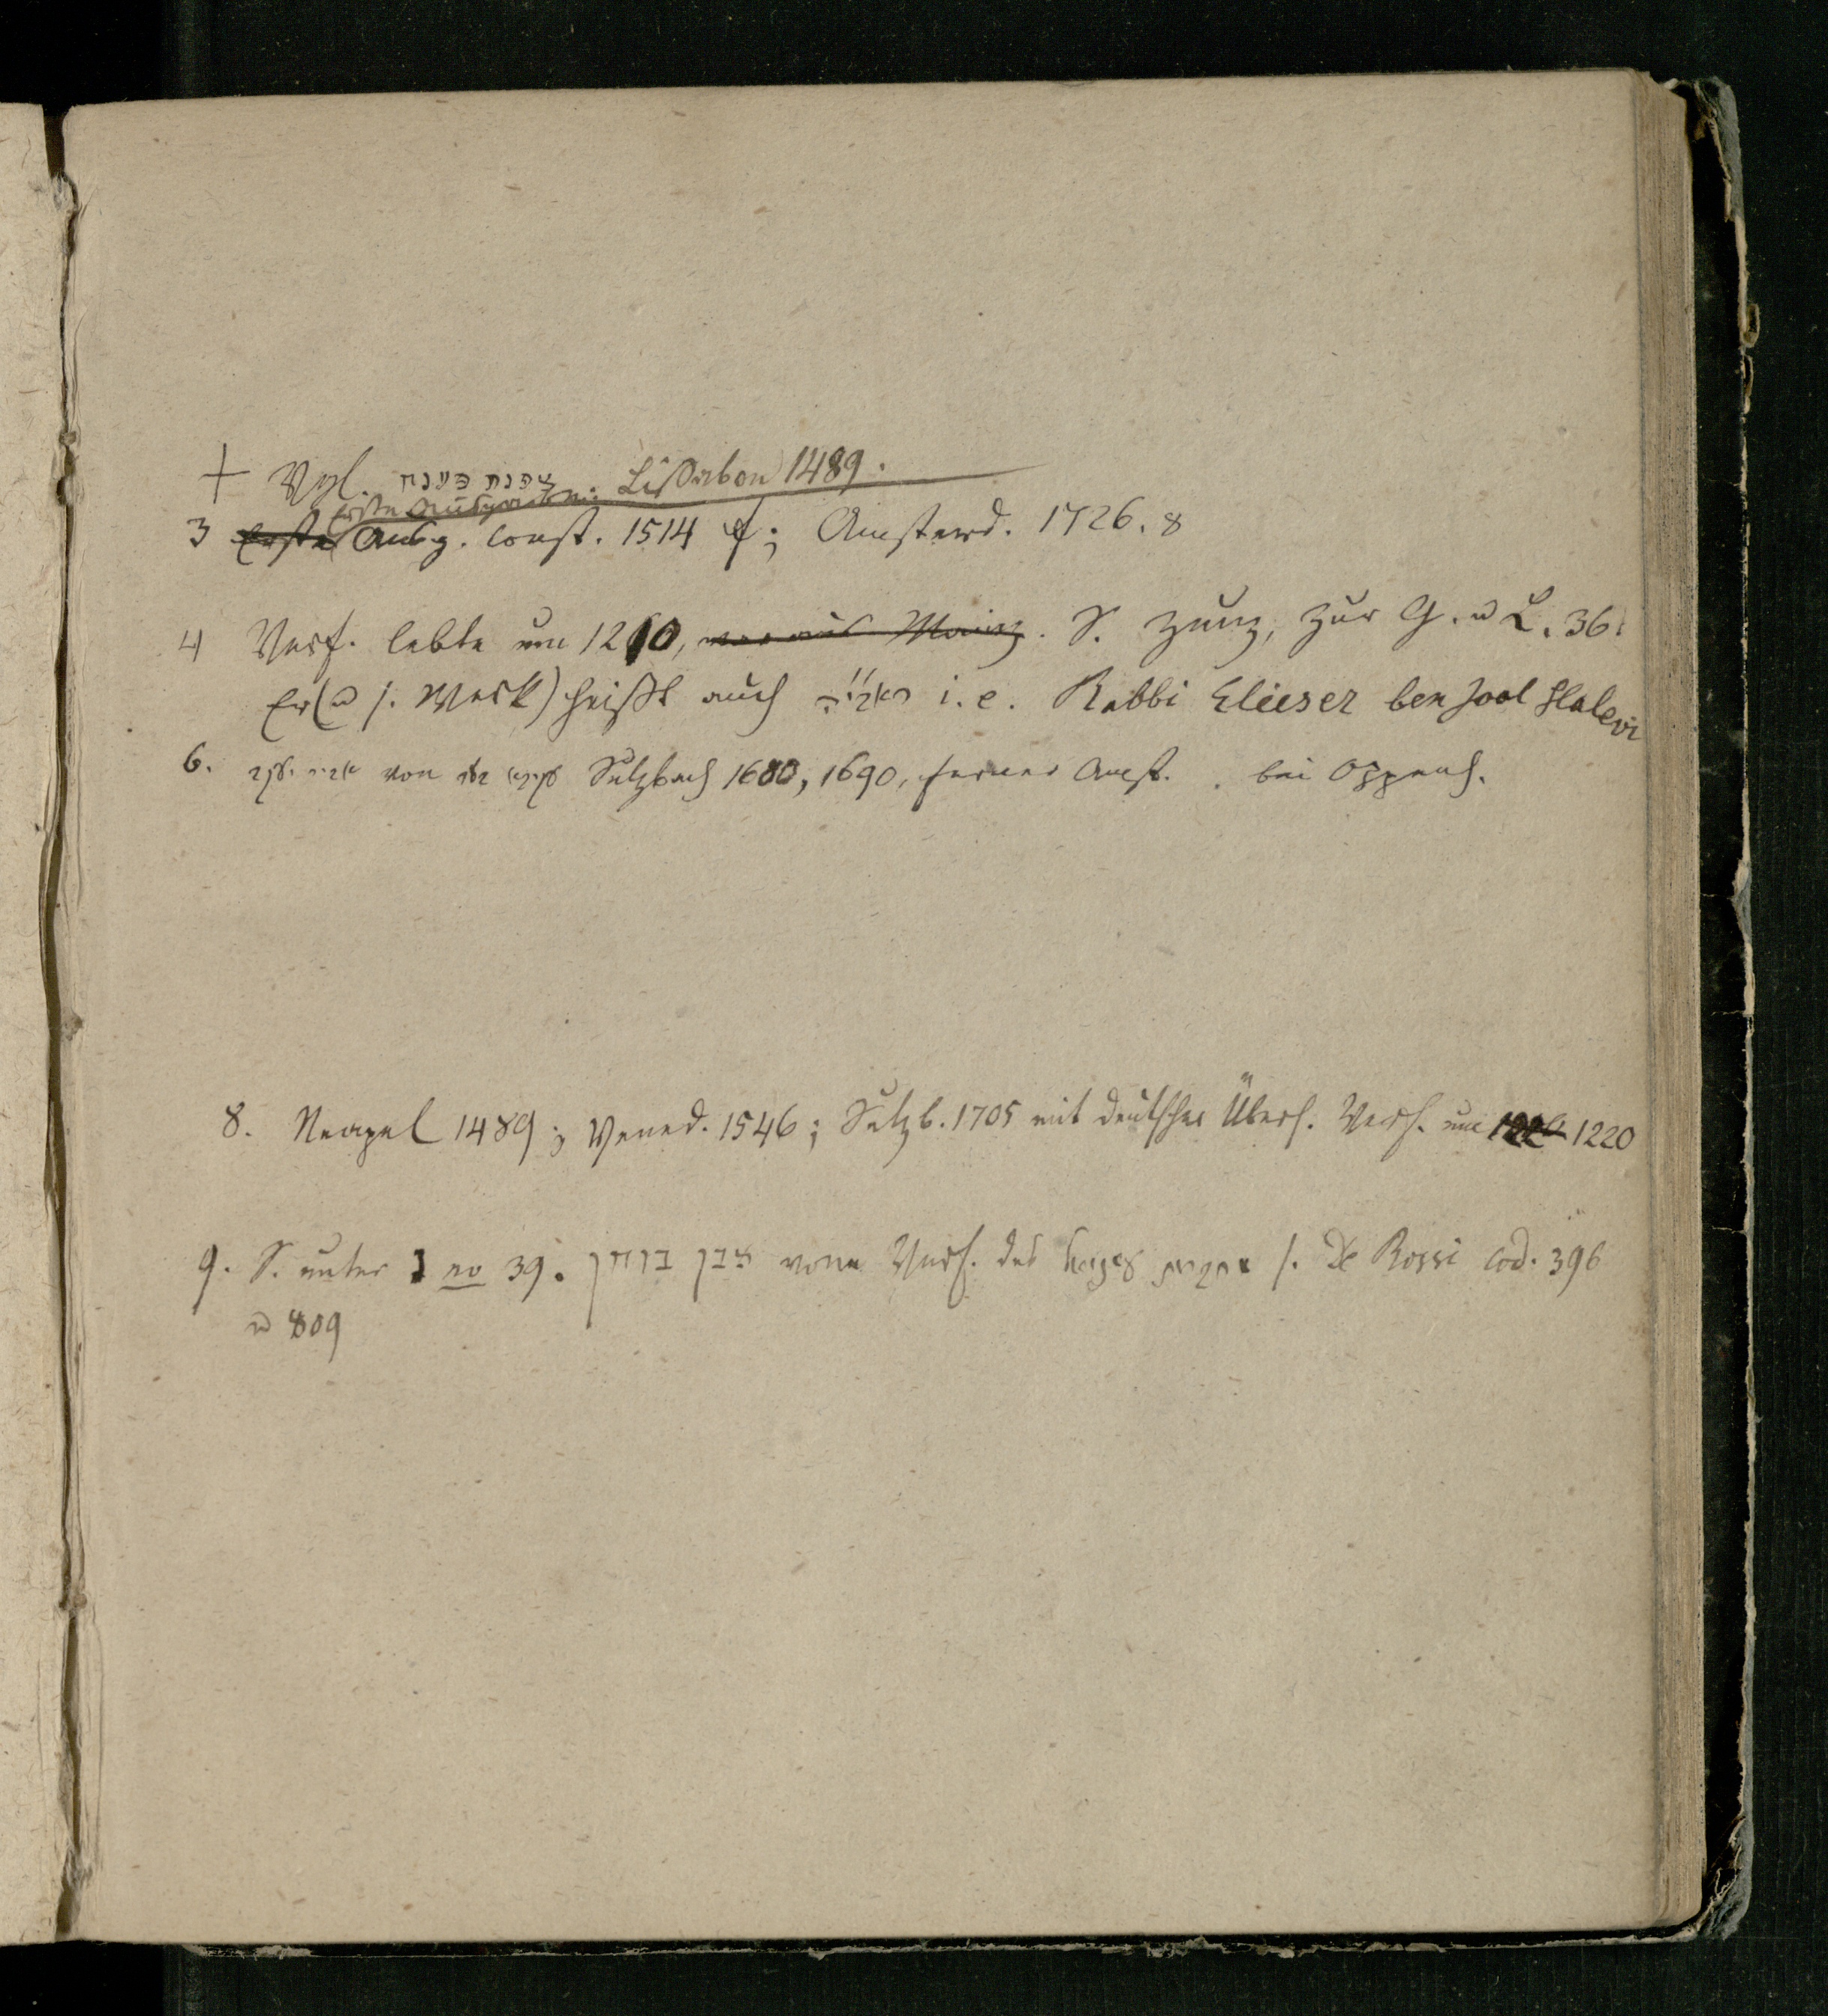 + Vgl. צפנת פענח
Erste Ausgaben: Lissabon 1489.
3 Erste Ausg. Const. 1514 f; Amsterd. 1726. 8
4 Verf. lebte um 1210, war aus Mainz. S. Zunz, Zur G. u L. 36.
Er (u s. Werk) heißt auch ראבי״ה i. e. Rabbi Elieser ben Joel Halevi
6. von Sulzbach 1680, 1690, ferner Amst. . bei Oppenh.
8. Neapel 1489; Vened. 1546; Sulzb. 1705 mit deutscher Übers. Verf. um 1220
9. S. unter נ no 39. אבן בוחן vom Verf. des s. De Rossi Cod. 396
u 809